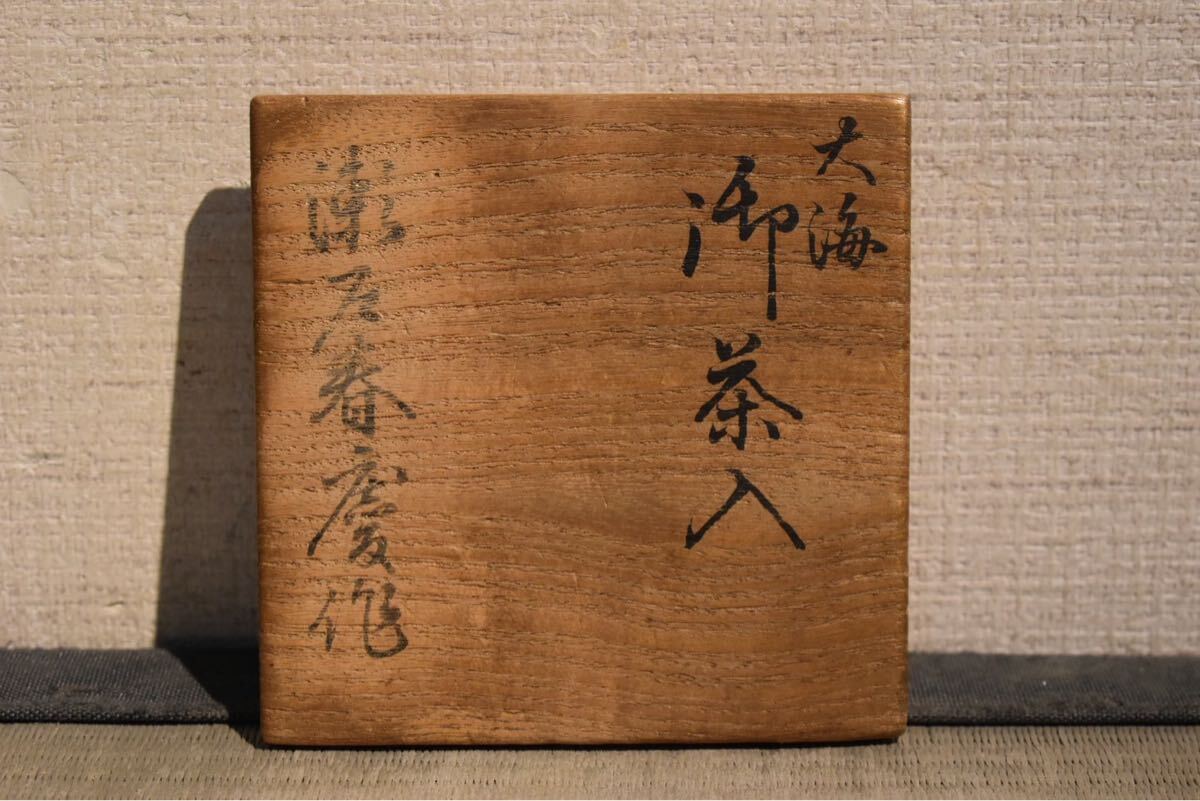 大海
御茶入
瀬戸春慶作